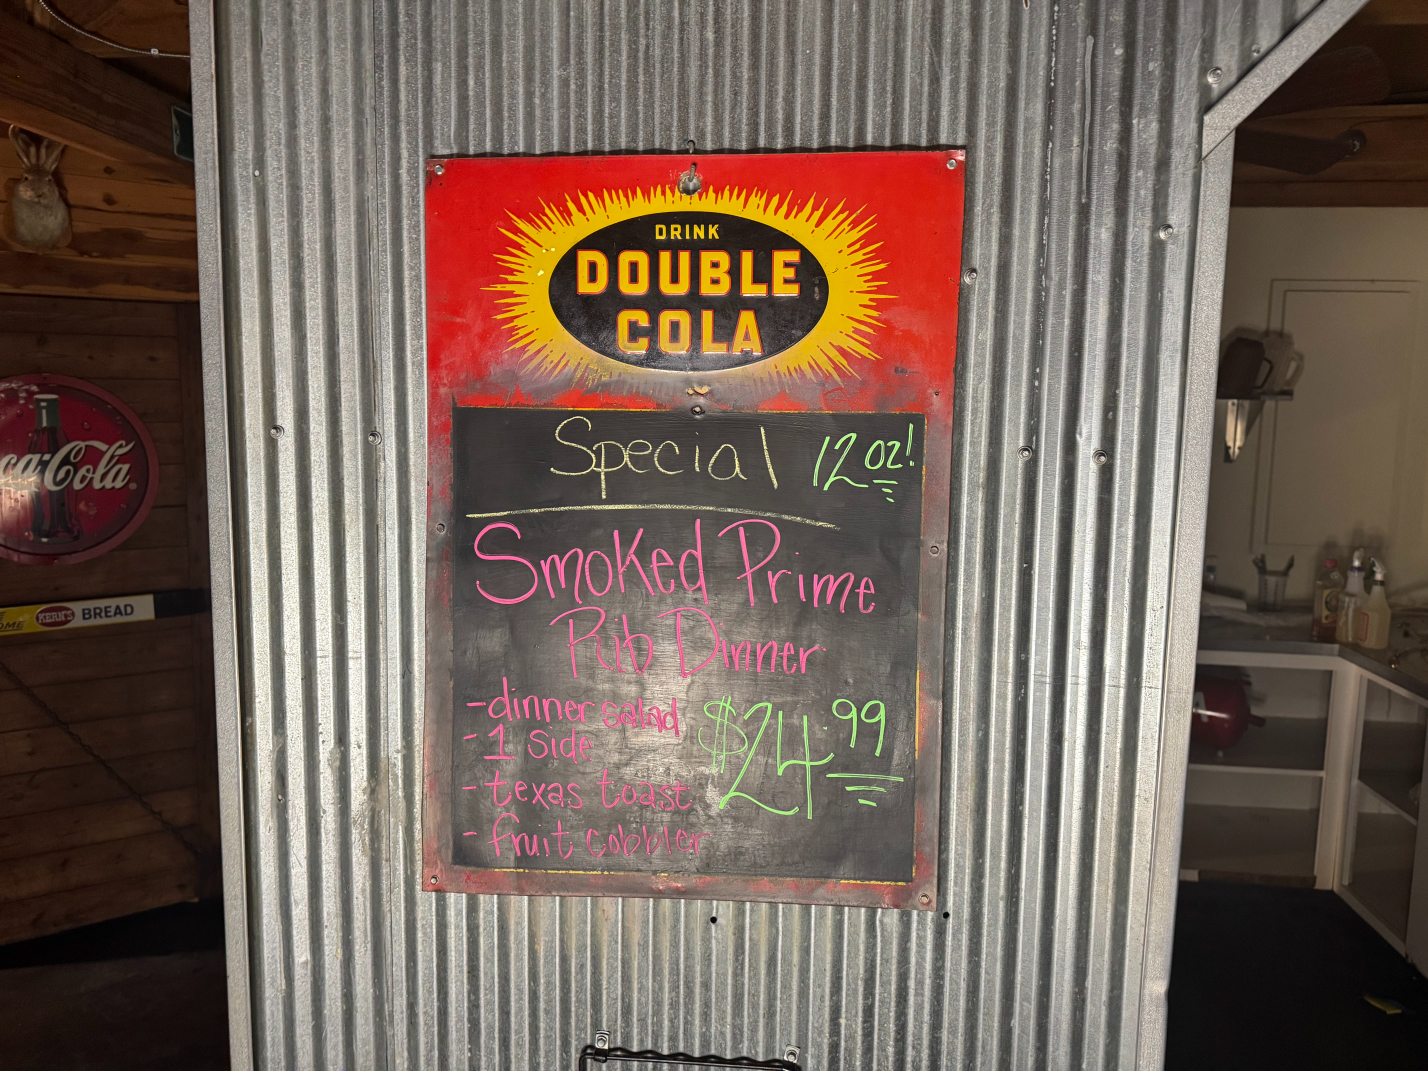 DRINK
DOUBLE
COLA
Special 12 oz!
Smoked Prime
Rib Dinner
- dinner salad
- 1 Side
- texas toast
- fruit cobbler
$24.99
ca-Cola
KERN'S BREAD
OME